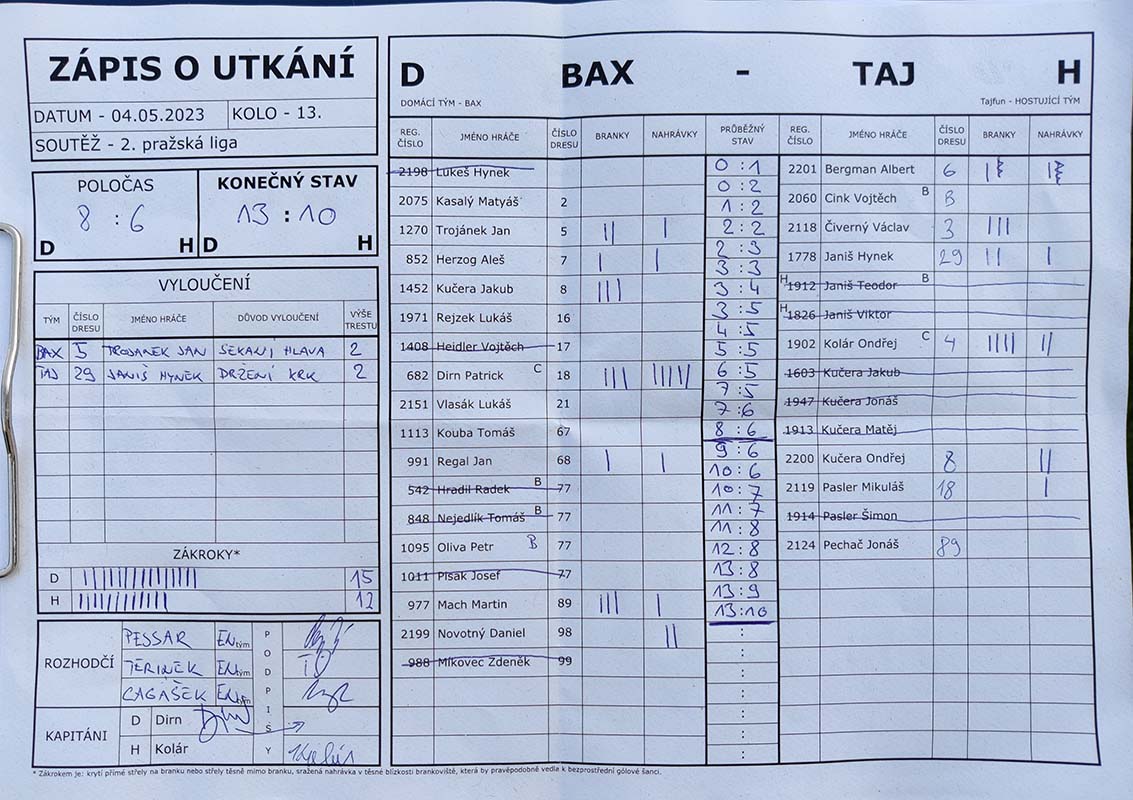 ZÁPIS O UTKÁNÍ
DATUM - 04.05.2023 KOLO - 13.
SOUTĚŽ - 2. pražská liga
POLOČAS KONEČNÝ STAV
8 : 6 13 : 10
D H D H
VYLOUČENÍ
TÝM ČÍSLO DRESU JMÉNO HRÁČE DŮVOD VYLOUČENÍ VÝŠE TRESTU
BAX 5 TROJANEK JAN SEKANÍ HLAVA 2
TAJ 29 JANIŠ HYNEK DRŽENÍ KRK 2
ZÁKROKY*
D 15
H 12
ROZHODČÍ
PESSAR ENtým
TERINEK ENtým
CAGAŠEK ENtým
PODPISY
KAPITÁNI
D Dirn
H Kolár
D BAX - TAJ H
DOMÁCÍ TÝM - BAX Tajfun - HOSTUJÍCÍ TÝM
REG. ČÍSLO JMÉNO HRÁČE ČÍSLO DRESU BRANKY NAHRÁVKY
2198 Lukeš Hynek
2075 Kasalý Matyáš 2
1270 Trojánek Jan 5 || |
852 Herzog Aleš 7 | |
1452 Kučera Jakub 8 |||
1971 Rejzek Lukáš 16
1408 Heidler Vojtěch 17
682 Dirn Patrick C 18 |||
2151 Vlasák Lukáš 21
1113 Kouba Tomáš 67
991 Regal Jan 68 | |
542 Hradil Radek B 77
848 Nejedlík Tomáš B 77
1095 Oliva Petr B 77
1011 Pisak Josef 77
977 Mach Martin 89 ||| |
2199 Novotný Daniel 98 ||
988 Mikovec Zdeněk 99
PRŮBĚŽNÝ STAV
0 : 1
0 : 2
1 : 2
2 : 2
2 : 3
3 : 3
3 : 4
3 : 5
4 : 5
5 : 5
6 : 5
7 : 5
7 : 6
8 : 6
9 : 6
10 : 6
10 : 7
11 : 7
11 : 8
12 : 8
13 : 8
13 : 9
13 : 10
:
:
:
:
:
REG. ČÍSLO JMÉNO HRÁČE ČÍSLO DRESU BRANKY NAHRÁVKY
2201 Bergman Albert 6
2060 Cink Vojtěch B B
2118 Čiverný Václav 3 |||
1778 Janiš Hynek 29 || |
H 1912 Janiš Teodor B
H 1826 Janiš Viktor
1902 Kolár Ondřej C 4 |||| ||
1603 Kučera Jakub
1947 Kučera Jonáš
1913 Kučera Matěj
2200 Kučera Ondřej 8 ||
2119 Pasler Mikuláš 18 |
1914 Pasler Šimon
2124 Pechač Jonáš 89
* Zákrokem je: krytí přímé střely na branku nebo střely těsně mimo branku, sražená nahrávka v těsné blízkosti brankoviště, která by pravěpodobně vedla k bezprostřední gólové šanci.